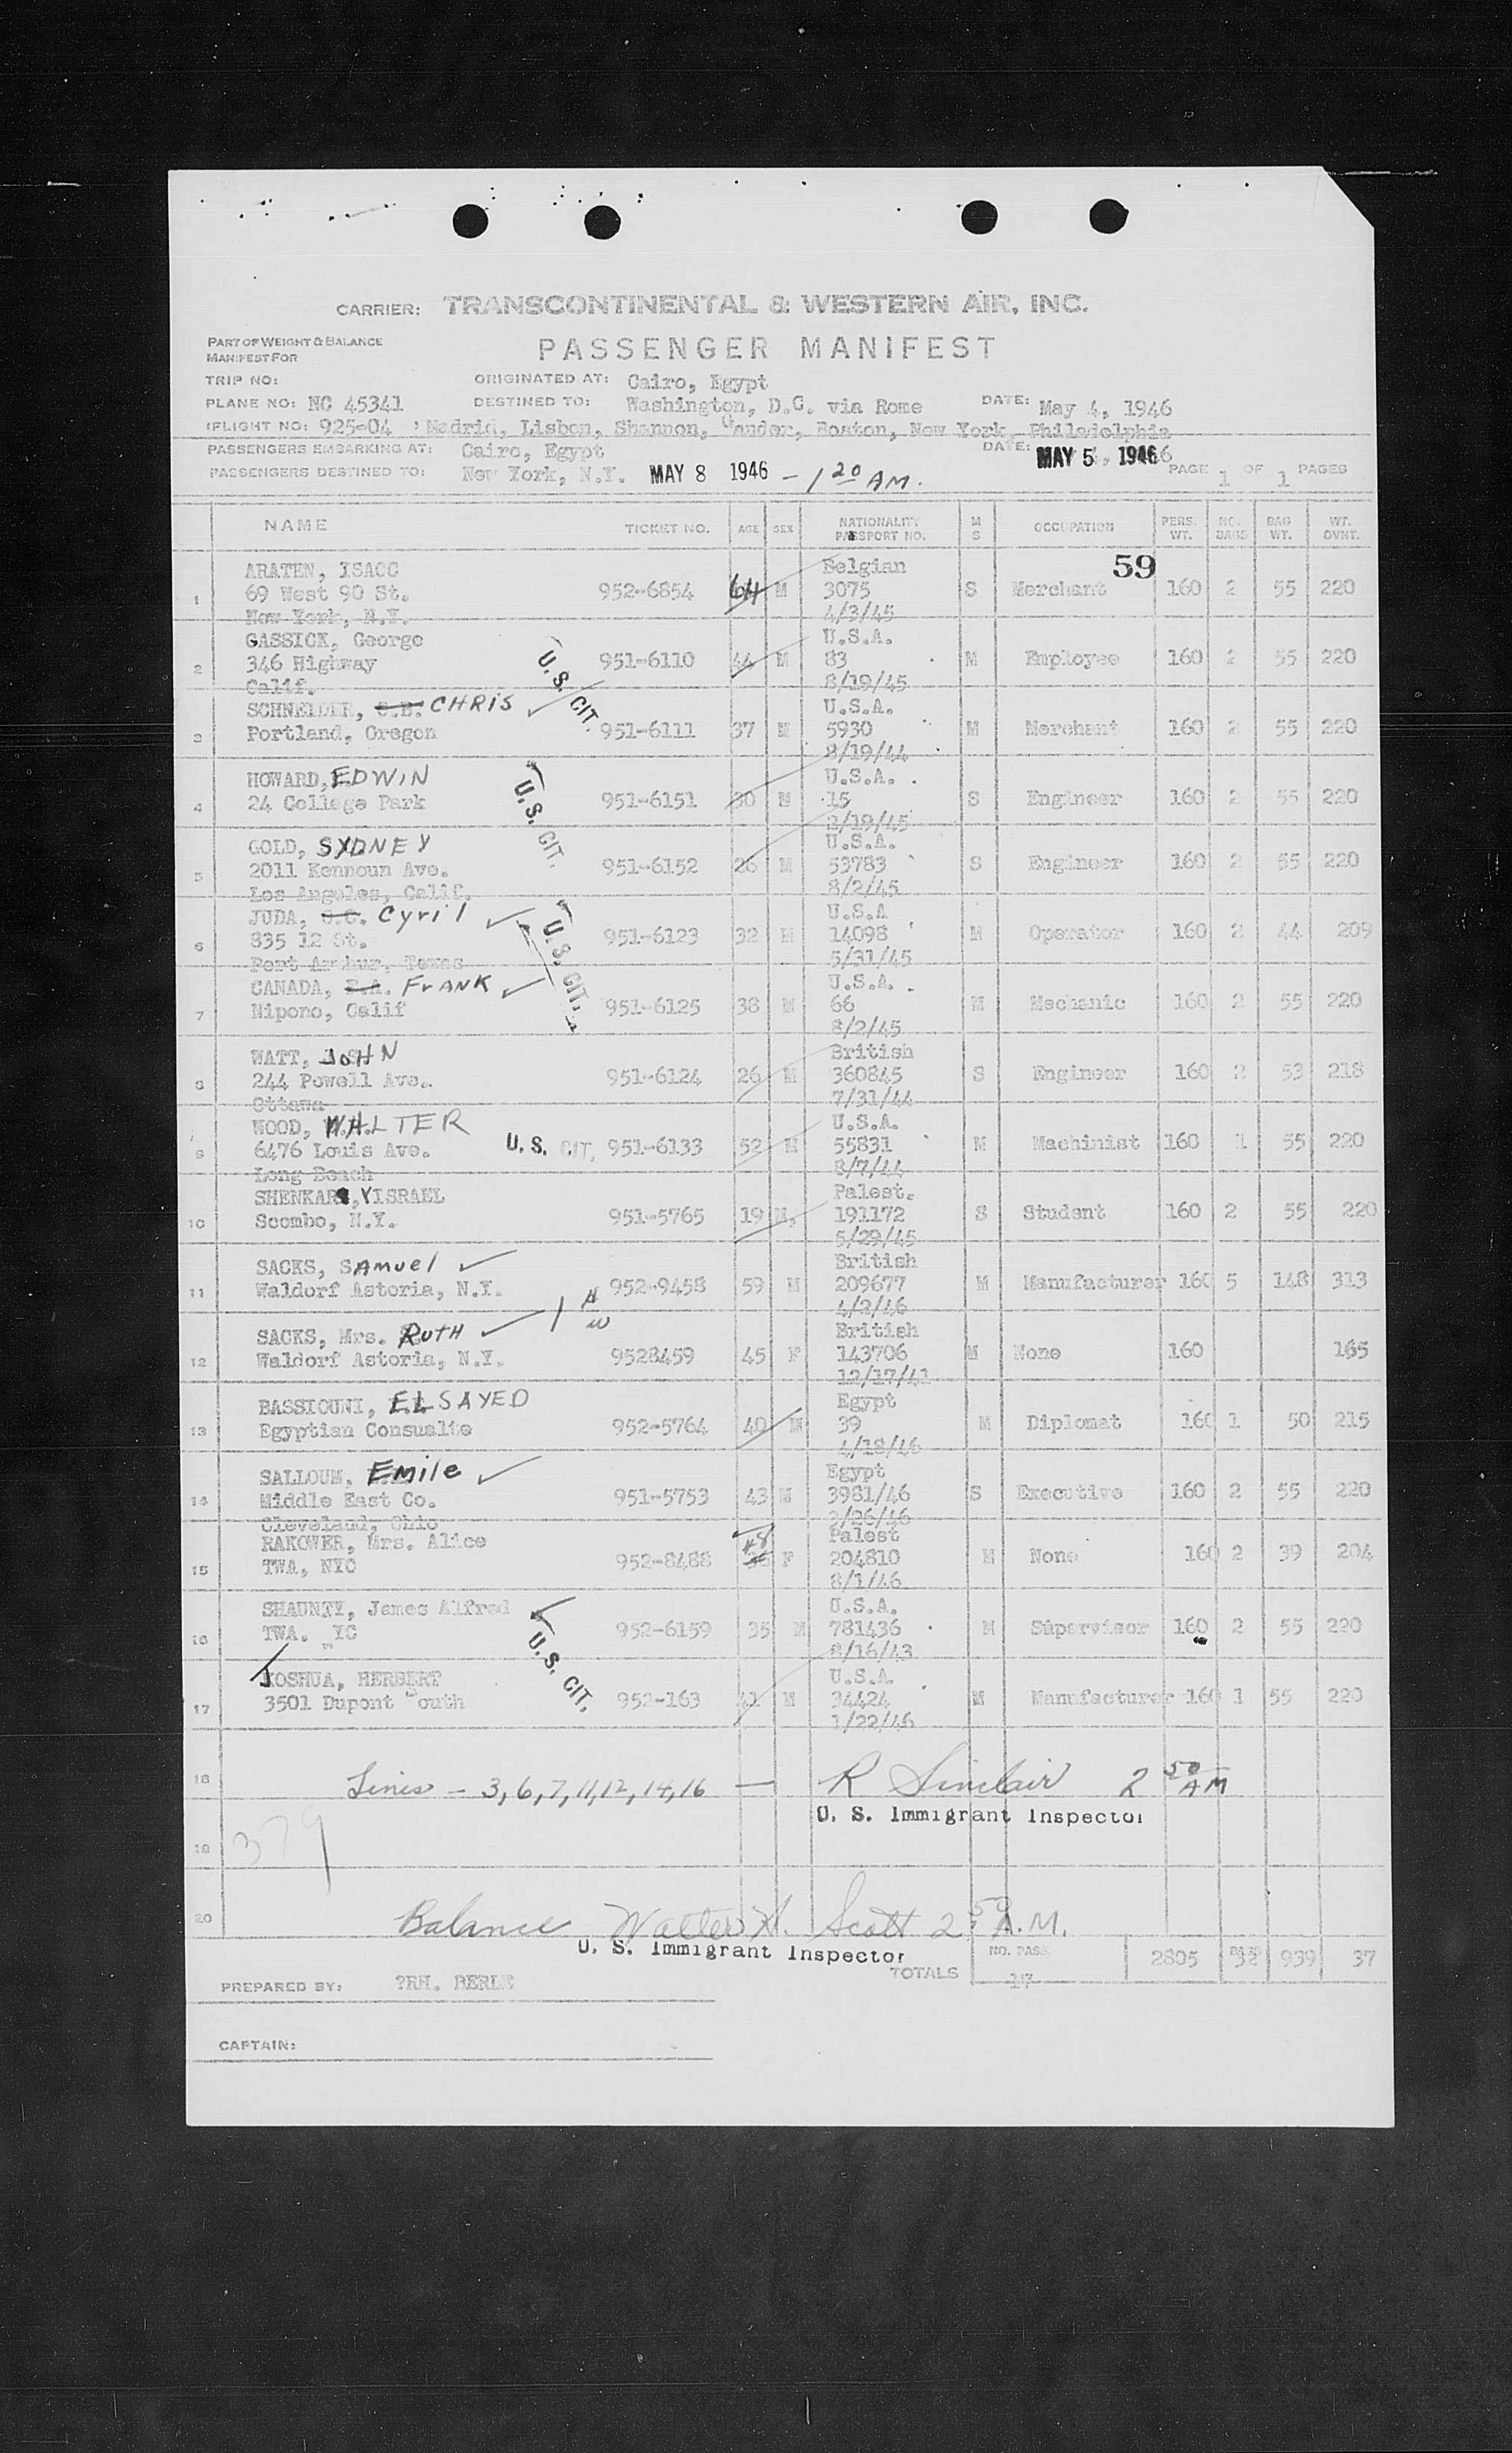 CARRIER: TRANSCONTINENTAL & WESTERN AIR, INC.
PART OF WEIGHT & BALANCE
MANIFEST FOR
PASSENGER MANIFEST
TRIP NO: ORIGINATED AT: Cairo, Egypt
PLANE NO: NC 45341 DESTINED TO: Washington, D.C. via Rome DATE: May 4, 1946
FLIGHT NO: 925-04 Madrid, Lisbon, Shannon, Gander, Boston, New York, Philadelphia
PASSENGERS EMBARKING AT: Cairo, Egypt DATE: MAY 5 1946
PASSENGERS DESTINED TO: New York, N.Y. MAY 8 1946 - 1 20 AM. PAGE 1 OF 1 PAGES
NAME TICKET NO. AGE SEX NATIONALITY PASSPORT NO. M S OCCUPATION PERS. WT. NO. BAGS BAG WT. WT. OVNT.
59
ARATEN, ISACC Belgian
1 69 West 90 St. 952-6854 64 M 3075 S Merchant 160 2 55 220
New York, N.Y. 4/3/45
GASSICK, George U.S.A.
2 346 Highway 951-6110 44 M 83 M Employee 160 2 55 220
Calif. 8/19/45
U. S. CIT.
SCHNEIDER, CHRIS U.S.A.
3 Portland, Oregon 951-6111 37 M 5930 M Merchant 160 2 55 220
8/19/44
HOWARD, EDWIN U.S.A.
4 24 College Park 951-6151 30 M 15 S Engineer 160 2 55 220
8/19/45
U. S. CIT.
GOLD, SYDNEY U.S.A.
5 2011 Kennoun Ave. 951-6152 26 M 53783 S Engineer 160 2 55 220
Los Angeles, Calif. 8/2/45
JUDA, Cyril U.S.A
6 835 12 St. 951-6123 32 M 14098 M Operator 160 2 44 209
Port Arthur, Texas 5/31/45
U. S. CIT.
CANADA, FrANK U.S.A.
7 Nipono, Calif 951-6125 38 M 66 M Mechanic 160 2 55 220
8/2/45
WATT, JOHN British
8 244 Powell Ave. 951-6124 26 M 360845 S Engineer 160 2 53 218
Ottawa 7/31/44
WOOD, WALTER U.S.A.
9 6476 Louis Ave. U. S. CIT. 951-6133 52 M 55831 M Machinist 160 1 55 220
Long Beach 8/7/44
SHENKAR, YISRAEL Palest.
10 Scombo, N.Y. 951-5765 19 M, 191172 S Student 160 2 55 220
5/29/45
SACKS, SAmuel British
11 Waldorf Astoria, N.Y. 952-9458 59 M 209677 M Manufacturer 160 5 148 313
4/2/46
H
W
SACKS, Mrs. RUTH British
12 Waldorf Astoria, N.Y. 9528459 45 F 143706 M None 160 165
12/17/41
BASSIOUNI, EL SAYED Egypt
13 Egyptian Consualte 952-5764 40 M 39 M Diplomat 160 1 50 215
4/18/46
SALLOUM, Emile Egypt
14 Middle East Co. 951-5753 43 M 3981/46 S Executive 160 2 55 220
Cleveland, Ohio 2/26/46
RAKOWER, Mrs. Alice Palest
15 TWA, NYC 952-8488 48 F 204810 M None 160 2 39 204
8/1/46
SHAUNTY, James Alfred U.S.A.
16 TWA. YC 952-6159 35 M 781436 M Supervisor 160 2 55 220
8/16/43
U. S. CIT.
JOSHUA, HERBERT U.S.A.
17 3501 Dupont South 952-163 41 M 34424 M Manufacturer 160 1 55 220
1/22/46
18 Lines - 3, 6, 7, 11, 12, 14, 16 — R Sinclair 2 50 AM
U. S. Immigrant Inspector
19 379
20 Balance Walter H. Scott 2 50 A.M.
U. S. Immigrant Inspector
TOTALS NO. PASS. 17 2805 32 939 37
PREPARED BY: ?RH. BERLE
CAPTAIN: